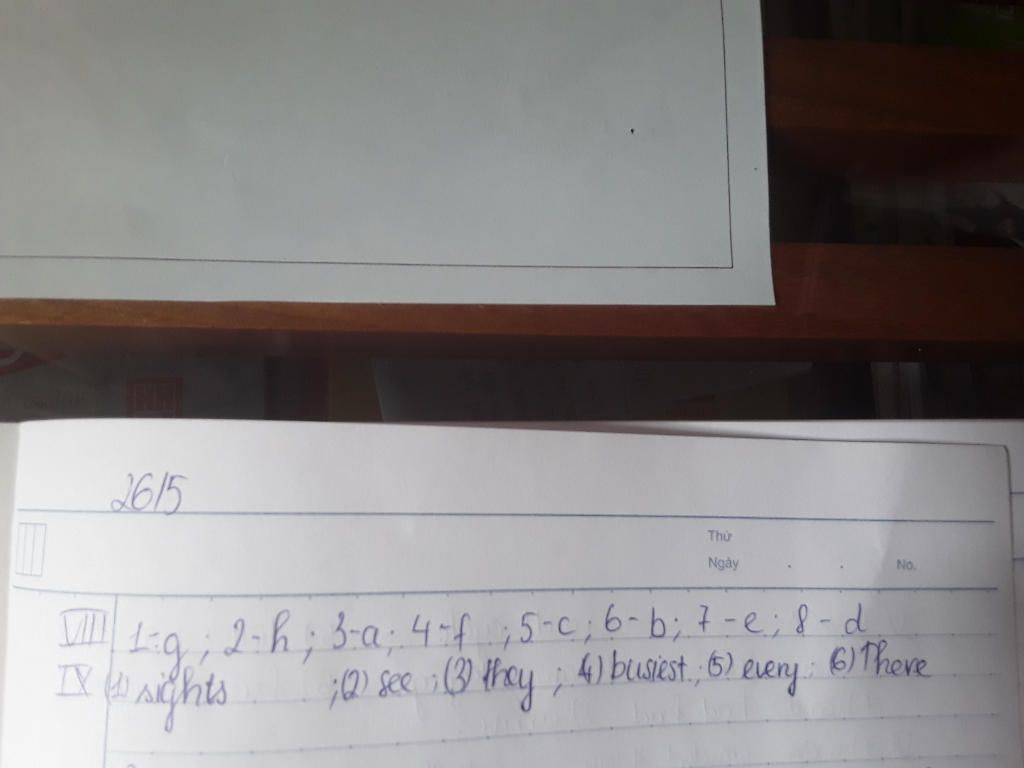 26/5
Thứ
Ngày . . No.
VIII 1-g; 2-h; 3-a; 4-f; 5-c; 6-b; 7-e; 8-d
IX (1) sights; (2) see; (3) they; (4) busiest; (5) every; (6) There